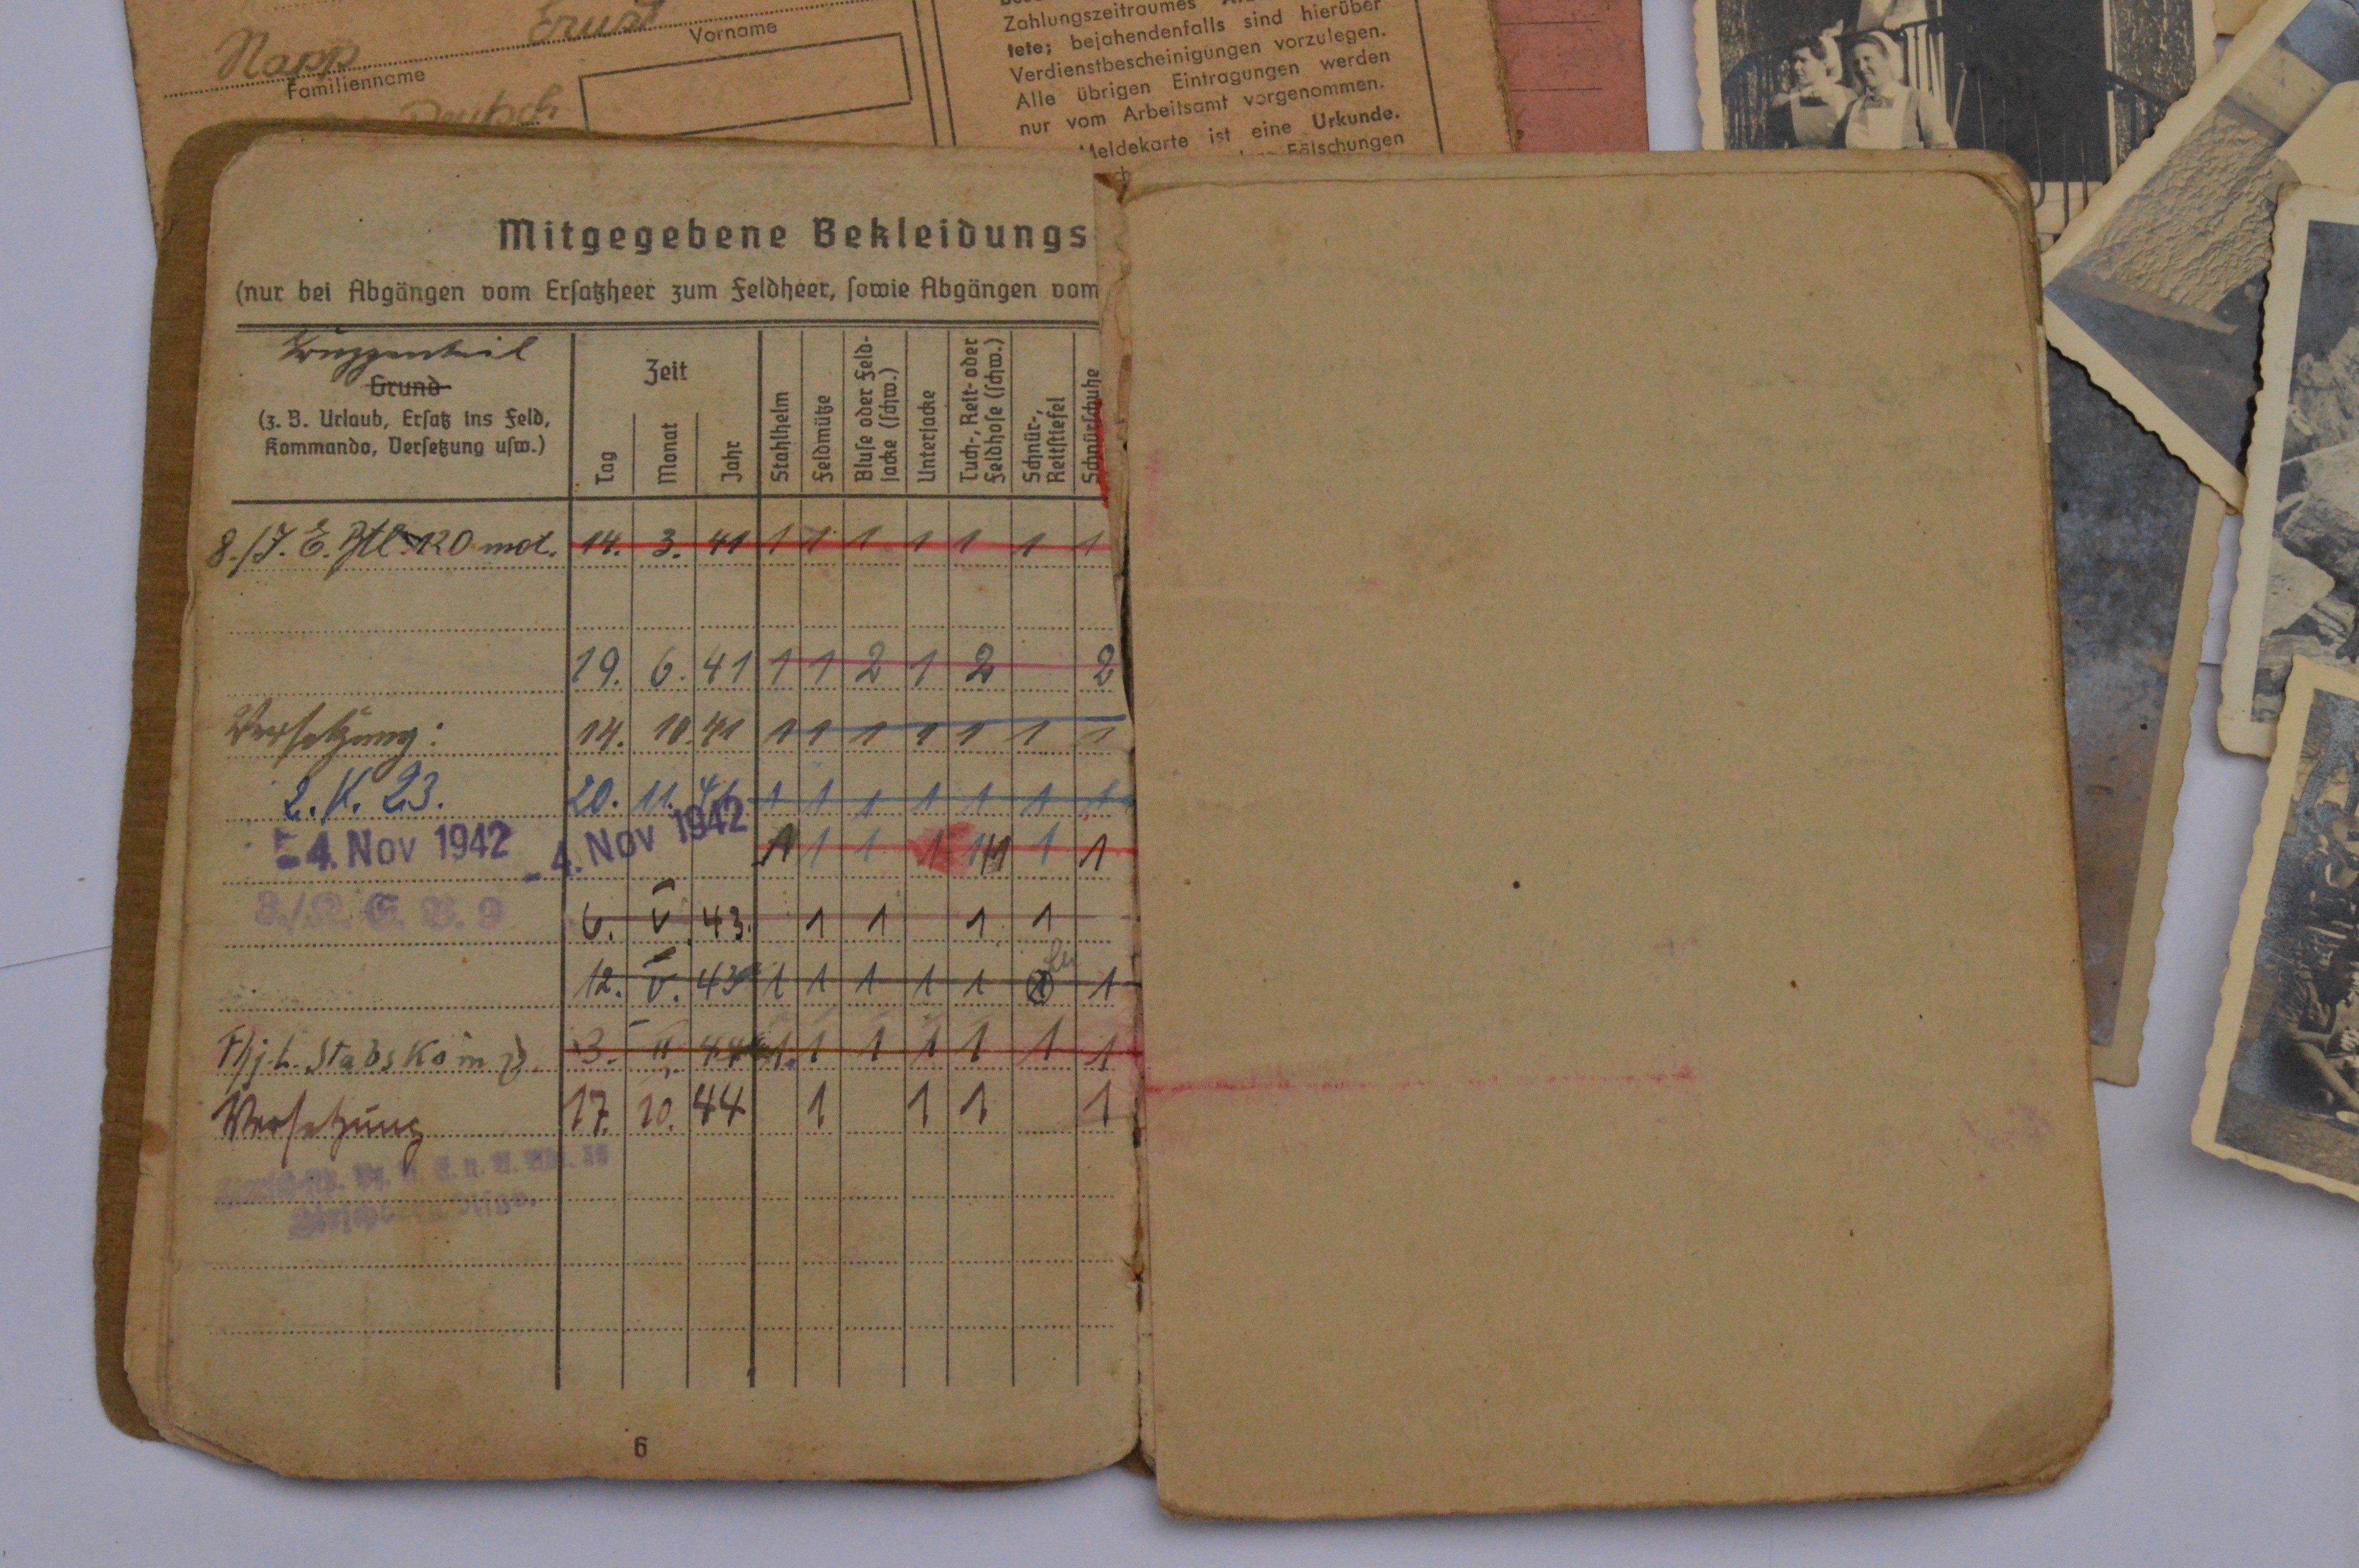 Rapp Ernst
Familienname Vorname
Deutsch
Zahlungszeitraumes
tete; bejahendenfalls sind hierüber
Verdienstbescheinigungen vorzulegen.
Alle übrigen Eintragungen werden
nur vom Arbeitsamt vorgenommen.
Meldekarte ist eine Urkunde.
Fälschungen
Mitgegebene Bekleidungs
(nur bei Abgängen vom Ersatzheer zum Feldheer, sowie Abgängen vom
Truppenteil
Grund
(z. B. Urlaub, Ersatz ins Feld,
Kommando, Versetzung usw.)
Zeit
Tag
Monat
Jahr
Stahlhelm
Feldmütze
Bluse oder Feld-
jacke (schw.)
Unterjacke
Tuch-, Reit- oder
Feldhose (schw.)
Schnür-,
Reitstiefel
Schnürschuhe
8./J. E. Btl. 120 mot. 14. 3. 41 1 1 1 1 1 1 1
19. 6. 41 1 1 2 1 2 2
Versetzung: 14. 10. 41 1 1 1 1 1 1 1
2. K. 23. 20. 11. 41 1 1 1 1 1 1 1
- 4. Nov 1942 - 4. Nov 1942 1 1 1 1 1 1 1
6. V 43. 1 1 1 1
12. V. 43 1 1 1 1 1 1
Stabskomp. 3. II 44 1 1 1 1 1 1 1
Versetzung 17. 10. 44 1 1 1 1
6